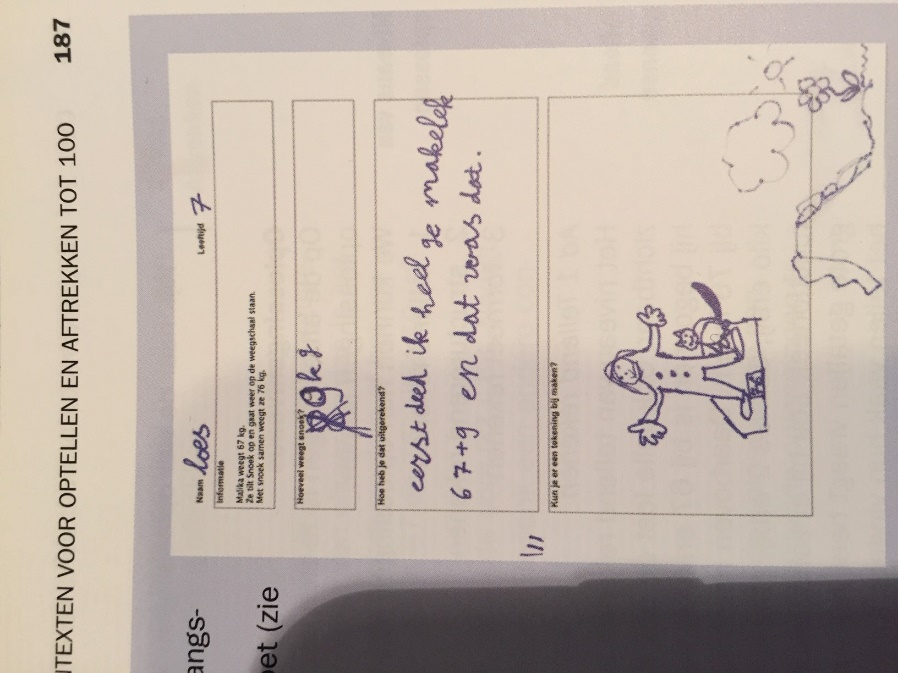 187
NTEXTEN VOOR OPTELLEN EN AFTREKKEN TOT 100
angs-
oet (zie
Naam loes Leeftijd 7
Informatie
Malika weegt 67 kg.
Ze tilt Snoek op en gaat weer op de weegschaal staan.
Met snoek samen weegt ze 76 kg.
Hoeveel weegt snoek?
9kg
Hoe heb je dat uitgerekend?
eerst deed ik heel ge makelek
67+9 en dat was dat.
Kun je er een tekening bij maken?